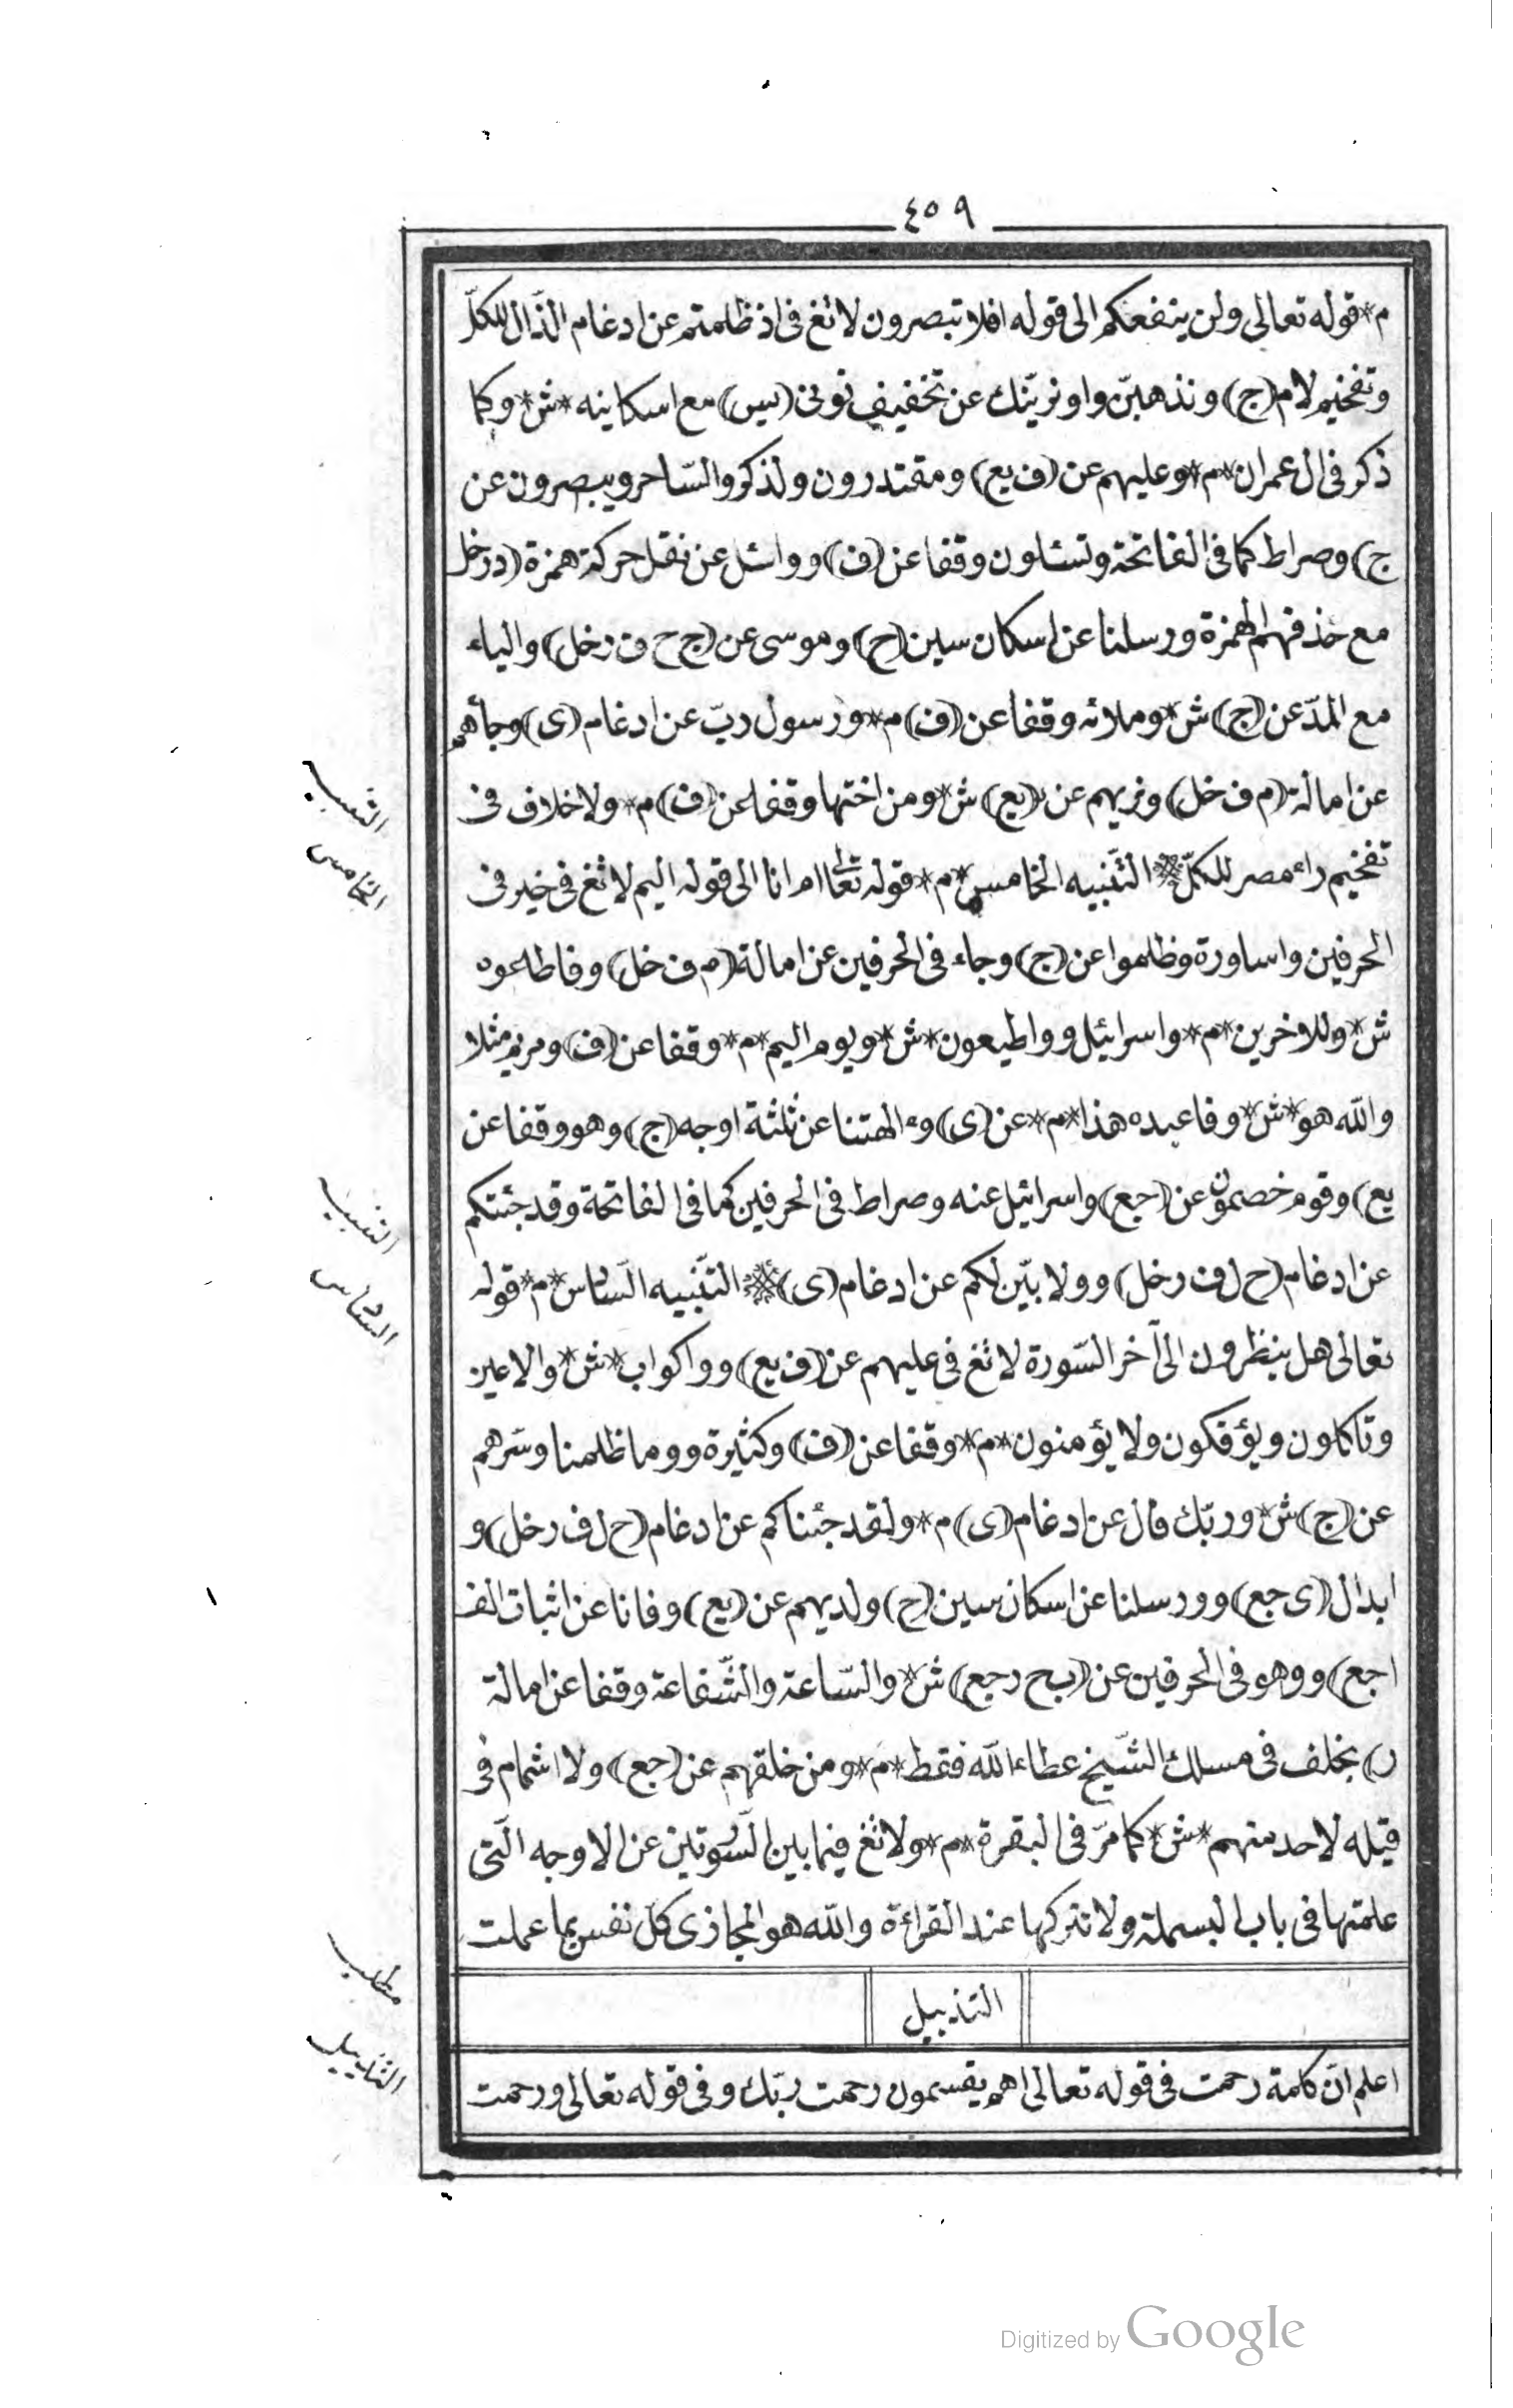 ٤٥٩
م* قوله تعالى ولن ينفعكم الى قوله افلا تبصرون لاتغ فى اذ ظلمتم عن ادغام الذّال للكلّ
وتفخيم لام (ج) ونذهبنّ واو نرينّك عن تخفيف نونى (يس) مع اسكانينه *ش* وكما
ذكر فى ال عمران *م* وعليهم عن (ف يع) ومقتدرون ولذكر والسّاحر ويبصرون عن
ج) وصراط كما فى الفاتحة وتسئلون وقفا عن (ف) وواسئل عن نقل حركة همزة (د رخل
مع حذفهم الهمزة ورسلنا عن اسكان سين (ح) وموسى عن (ج ح ف رخل) والياء
مع المدّ عن (ج) ش* وملائه وقفا عن (ف) م* ورسول ربّ عن ادغام (ى) وجاءهم
عن امالة (م ف خل) ونريهم عن (يع) ش* ومن اختها وقفا عن (ف) م* ولا خلاف فى
تفخيم راء مصر للكلّ * التّنبيه الخامس *م* قوله تعالى ام انا الى قوله اليم لاتغ فى خير فى
الحرفين واساورة وظلموا عن (ج) وجاء فى الحرفين عن امالة (م ف خل) وفاطاعوه
ش* وللاخرين *م* واسرائيل وواطيعون *ش* ويوم اليم *م* وقفا عن (ف) ومريم مثلا
والله هو *ش* وفاعبدوه هذا *م* عن (ى) وءالهتنا عن ثلثة اوجه (ج) وهو وقفا عن
يع) وقوم خصمون عن (جع) واسرائيل عنه وصراط فى الحرفين كما فى الفاتحة وقد جئتكم
عن ادغام (ح ل ف رخل) وولابيّن لكم عن ادغام (ى) * التّنبيه السّادس *م* قوله
تعالى هل ينظرون الى آخر السّورة لاتغ فى عليهم عن (ف يع) وواكواب *ش* والاعين
وتاكلون ويؤفكون ولا يؤمنون *م* وقفا عن (ف) وكثيرة ووما ظلمنا وسرّهم
عن (ج) ش* وربّك قال عن ادغام (ى) م* ولقد جئناكم عن ادغام (ح ل ف رخل) و
ابدال (ى جع) وورسلنا عن اسكان سين (ح) ولديهم عن (يع) وفانا عن اثبات الف
ا جع) ووهو فى الحرفين عن (ب ح ر جع) ش* والسّاعة والشّفاعة وقفا عن امالة
ر) بخلف فى مسلك الشّيخ عطاء الله فقط *م* ومن خلقهم عن (جع) ولا اشمام فى
قيله لاحد منهم *ش* كما مرّ فى البقرة *م* ولاتغ فيما بين السّورتين عن الاوجه الّتى
علمتها فى باب البسملة ولا تتركها عند القرائة والله هو المجازى كلّ نفس بما عملت
التذييل
اعلم انّ كلمة رحمت فى قوله تعالى اهم يقسمون رحمت ربّك وفى قوله تعالى ورحمت
التنبيه
الخامس
التنبيه
السادس
مطلب
التذييل
Digitized by Google